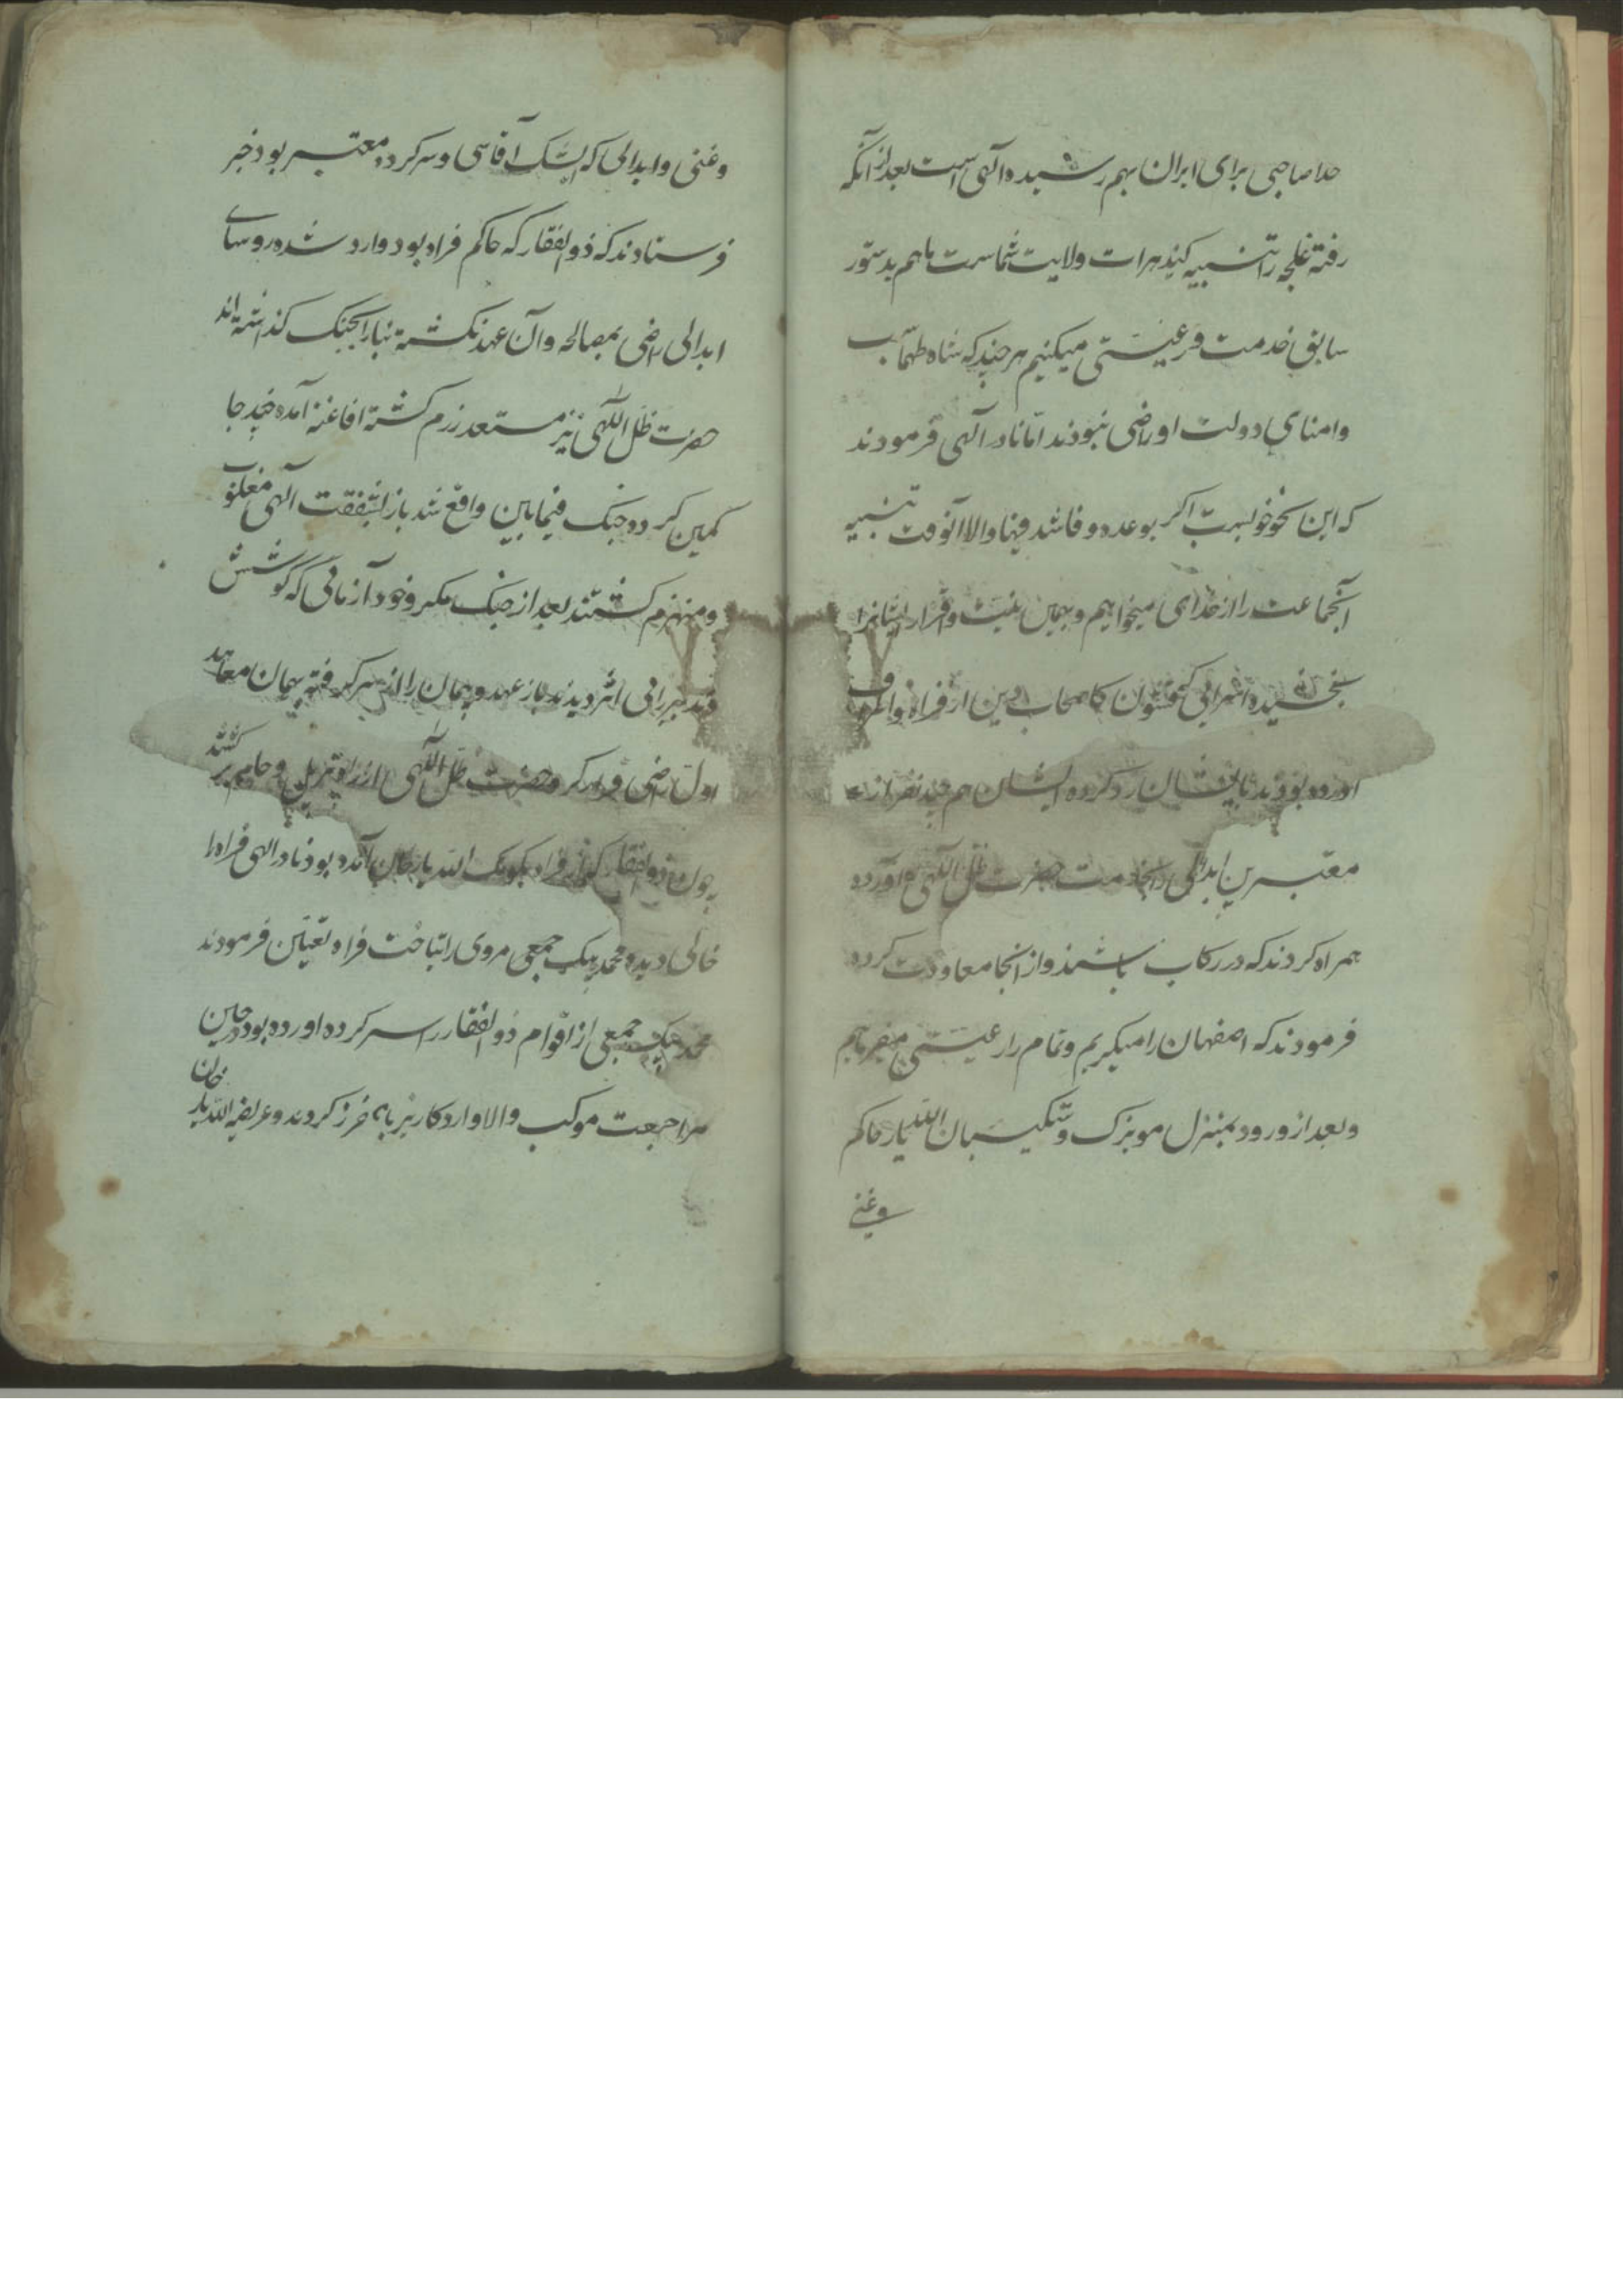 حلا صاحبی برای ایران بهم رسیده الهی است بعد از آنکه
رفته غلجه را تنبیه کنید هرات ولایت شماست ما هم بدستور
سابق خدمت و رعیتی میکنیم هر چند که شاه طهماسب
وامنای دولت او راضی نبودند اما نادر آلهی فرمودند
که این نحو خوبست اکر بوعده وفا شد فبها والا آنوقت تنبیه
آنجماعت را از خدای میخواهیم و بهمین نیت و اقرار ایشانرا
بخشیده اسرائی که فتون کاصحاب دین از فراه و
اورده بودند بایشان رد کرده ایشان هم چند نفر از
معتبرین ابدالی را بخدمت حضرت ظل اللهی آورده
همراه کردند که در رکاب باشند و از انجا معاودت کرده
فرمودند که اصفهان را میکیریم و تمام را رعیتی میفرمایم
و بعد از ورود بمنزل موبزک و تنکیسبان الله یار حاکم
وغنی
وغنی وابدالی که ایشک آقاسی و سرکرده معتبر بود خبر
فرستادند که ذوالفقار که حاکم فراه بود وارد شده روسای
ابدالی راضی بمصالحه و آن عهد نکشته بنا را بجنک کذاشته اند
حضرت ظل اللهی نیز مستعد رزم کشته افاغنه آمده چند جا
کمین کرده جنک فیمابین واقع شد باز بشفقت آلهی مغلوب
ومنهزم کشتند بعد از جنک مکرر و خود آزمائی که کوشش
وتدبیر را بی اثر دیدند باز عهد و پیمان را از سر کرفته پیمان معاهد
اول راضی و حضرت ظل اللهی را از کشتند
چون ذوالفقار که از فراه بکومک الله یار خان آمده بود نادر الهی فراه را
خالی دیده محمد بیک جمعی مروی را بتاخت فراه تعیین فرمودند
محمد بیک جمعی از اقوام ذوالفقار را سر کرده اورده بود در حین
مراجعت موکب والا وارد کاریز باخرز کردند و عریضه الله یار خان